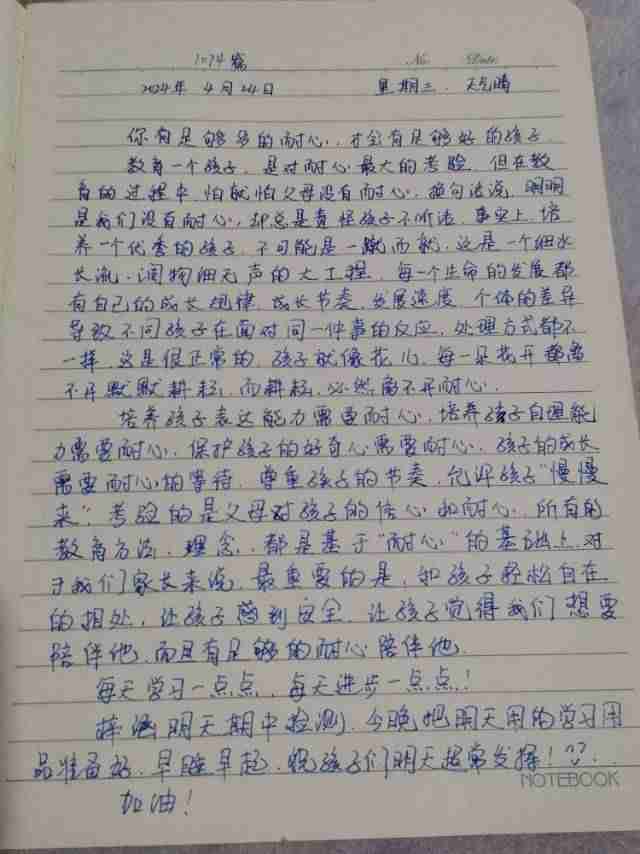 1274篇 No. Date.
2024年 4月24日 星期三. 天气晴
你有足够多的耐心，才会有足够好的孩子.
教育一个孩子，是对耐心最大的考验，但在教
育的过程中，怕就怕父母没有耐心，换句话说，明明
是我们没有耐心，却总是责怪孩子不听话，事实上，培
养一个优秀的孩子，不可能是一蹴而就，这是一个细水
长流、润物细无声的大工程，每一个生命的发展都
有自己的成长规律，成长节奏，发展速度，个体的差异
导致不同孩子在面对同一件事的反应，处理方式都不
一样，这是很正常的，孩子就像花儿，每一朵花开都离
不开默默耕耘，而耕耘，必然离不开耐心.
培养孩子表达能力需要耐心，培养孩子自理能
力需要耐心，保护孩子的好奇心需要耐心，孩子的成长
需要耐心的等待，尊重孩子的节奏，允许孩子“慢慢
来”，考验的是父母对孩子的信心和耐心，所有的
教育方法、理念，都是基于“耐心”的基础上，对
于我们家长来说，最重要的是，和孩子轻松自在
的相处，让孩子感到安全，让孩子觉得我们想要
陪伴他，而且有足够的耐心陪伴他.
每天学习一点点，每天进步一点点！
明天期中检测，今晚把明天用的学习用
品准备好，早睡早起，祝孩子们明天超常发挥！
NOTEBOOK
加油！